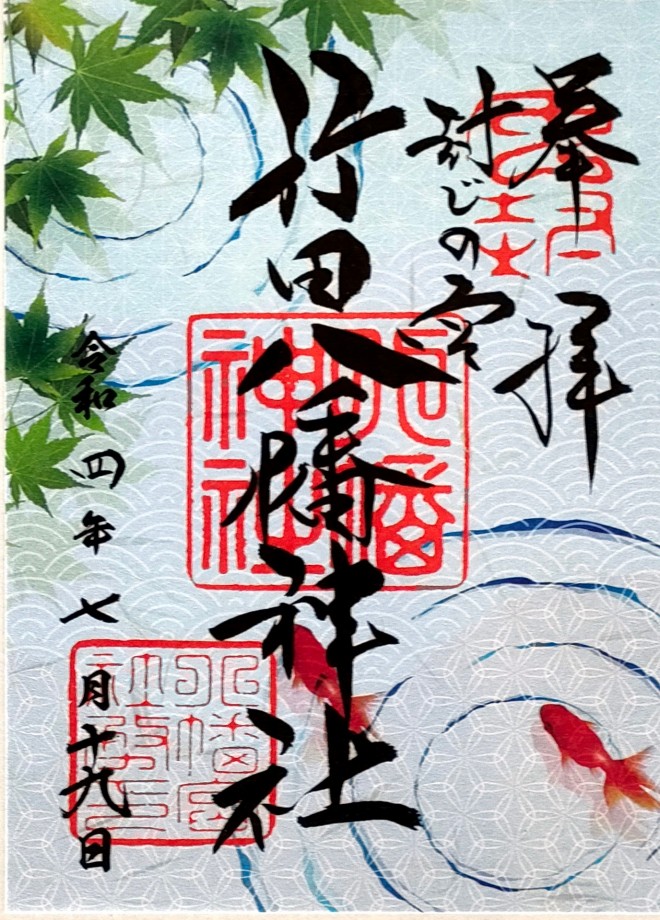 奉拝
封じの宮
行田八幡神社
八幡神社
令和四年七月十九日